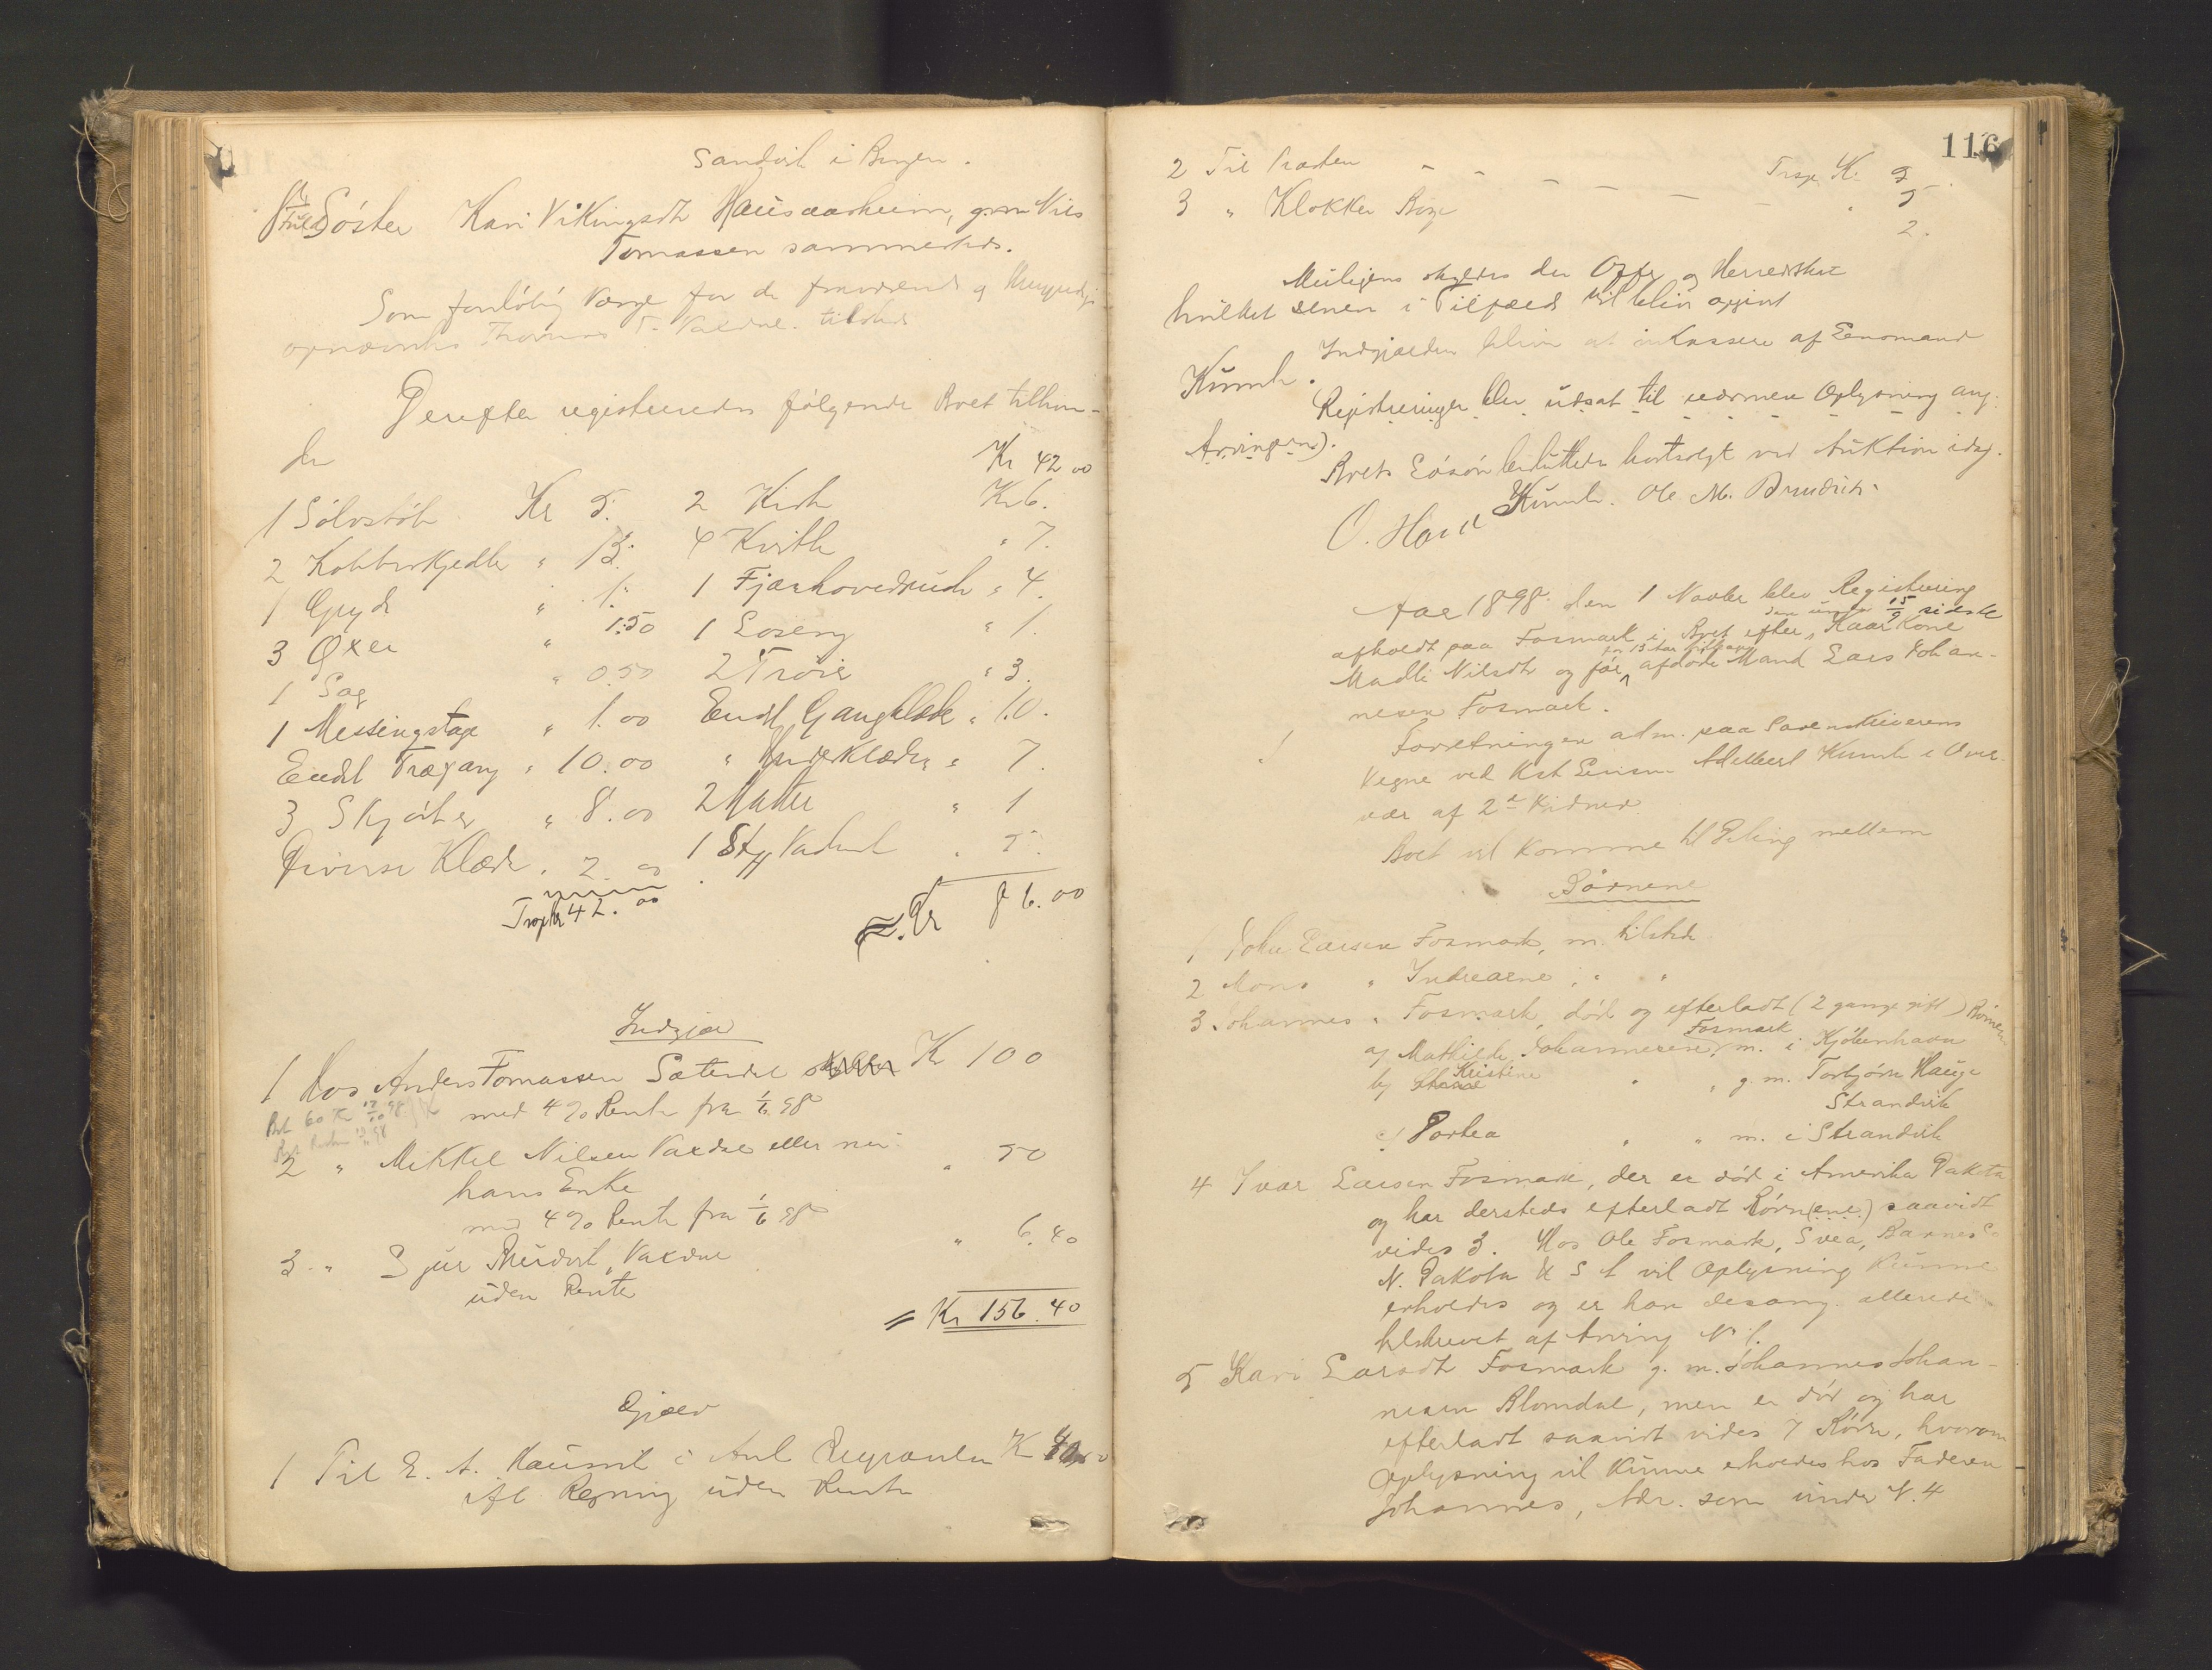 Sandvik i Bergen.
Søster Kari Vikingsdt Hausaarheim, g. m. Nils
Tomassen sammesteds.
Som forløbig Værge for de fraværende og
opnævntes Thomas T. Vaxdal. tilstede
Derefter registreredes følgende Boet tilhøren-
de
Kr 42 00
1 Sølvstøb Kr 5. 2 Kister Kr 6.
2 Kobberkjedler " 13. 4 " 7.
1 Gryde " 1. 1 " 4.
3 Øxer " 1.50 1 " 1.
1 Sag " 0.50 2 Trøier " 3.
1 Messingstage " 1.00 Endl Gangklæde " 10.
Endel Træfang " 10.00 " " 7.
3 Skjørter " 8.00 2 " 1
Diverse Klæde " 2.00 1 Stk Vadmel " 5.
Trsp Kr 42.00
Kr 86.00
Indgjæld
1 Hos Anders Tomassen Sætendal Kr 100
med 4 % Rente fra 1/6 98
Bet 60 Kr 17/10 98
2 " Mikkel Nilsen Vaxdal eller nu " 50
hans Enke
med 4 % Rente fra 1/6 98
3. " Sjur Vaxdal " 6.40
uden Rente
= Kr 156.40
Gjæld
1 Til E. A. i Anl Kr
ifl Regning uden Rente
116
2 Til Præsten - - - - - Trsp Kr
3 " Klokker - - " 5
2.
Muligens skyldes der Offer og Herredskat
hvilket senere i Tilfælde vil blive opgivet
Indgjælden bliver at inkassere af Lensmand
Kunch.
Registreringen blev udsat til nærmere Oplysning ang.
Arving(erne).
Boets Løsøre besluttedes bortsolgt ved Auktion idag.
O. Kunch. Ole M.
Aar 1898 den 1 Novbr blev Registrering
den unger 15/9 sidste
afholdt paa Fosmark i Boet efter Kaarkone
for 13 Aar
Madli Nilsdt og før afdøde Mand Lars Johan-
nesen Fosmark.
Forretningen adm. paa Sorenskriverens
Vegne ved Kst Lensm Adelbert Kunch i Over-
vær af 2de Vidner.
Boet vil komme til Deling mellem
Børnene
1 John Larsen Fosmark, m. tilstede
2 Mons " Indrearne, " "
3 Johannes " Fosmark, død og efterladt (2 gange gift) Børnene
a) Mathilde Johannesen Fosmark, m. i Kjøbenhavn
b) Kristine " " g. m. Torbjørn Hauge
Strandvik
c) Dorthea " " m. i Strandvik
4 Ivar Larsen Fosmark, der er død i Amerika Dakota
og har dersteds efterladt Børn(ene) saavidt
vides 3. Hos Ole Fosmark, Svea, Barnes Co
N. Dakota U S A vil Oplysning kunne
erholdes og er han desang. allerede
tilskrevet af Arving N 1.
5 Kari Larsdt Fosmark g. m. Johannes Johan-
nesen Blomdal, men er død og har
efterladt saavidt vides 7 Børn, hvorom
Oplysning vil kunne erholdes hos Faderen
Johannes, Adr. som under N. 4